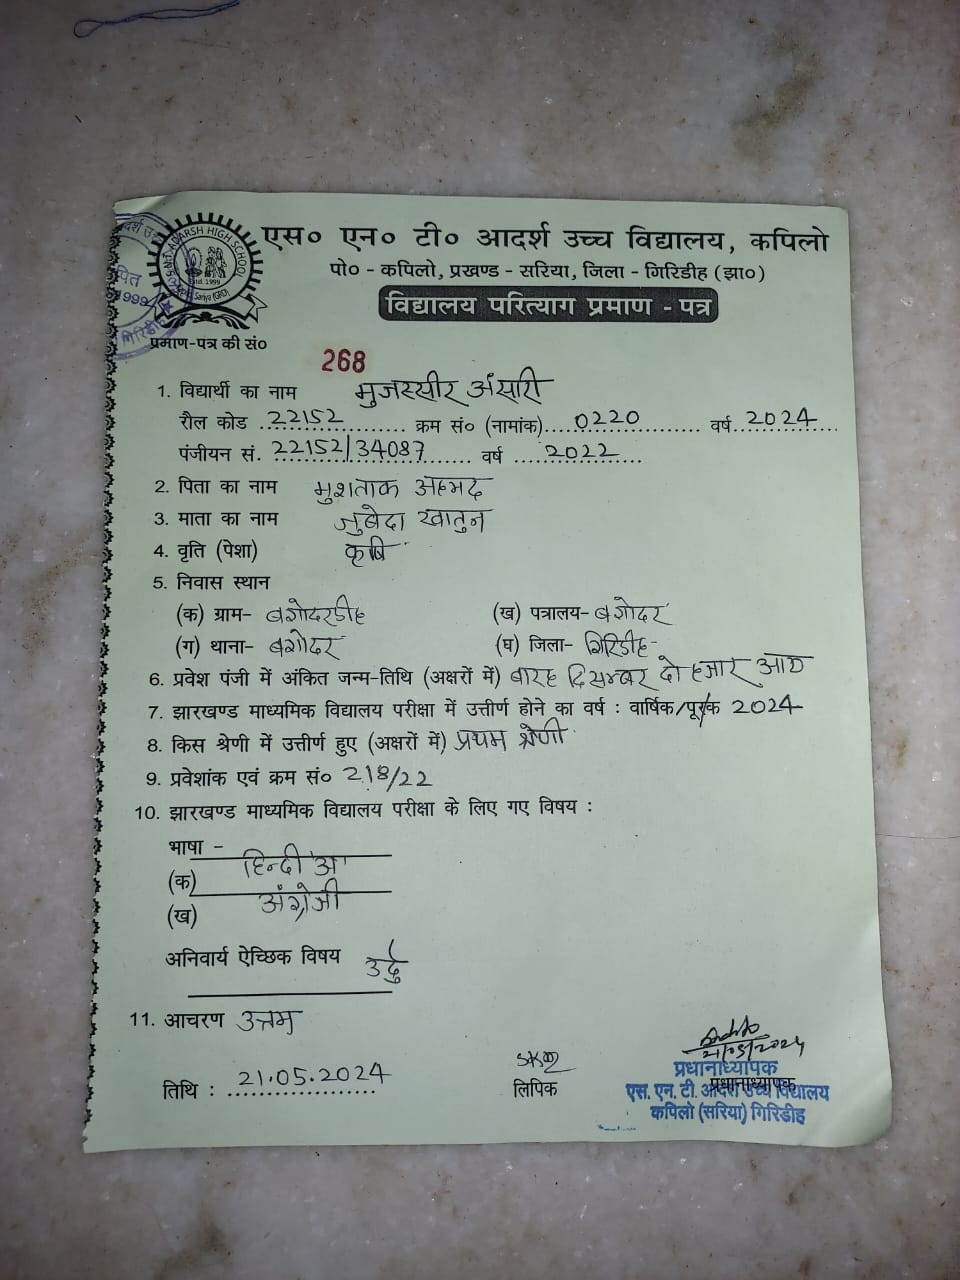 एस० एन० टी० आदर्श उच्च विद्यालय, कपिलो
पो० - कपिलो, प्रखण्ड - सरिया, जिला - गिरिडीह (झा०)
विद्यालय परित्याग प्रमाण - पत्र
ADARSH HIGH SCHOOL
Estd. 1999
प्रमाण-पत्र की सं० 268
1. विद्यार्थी का नाम मुजस्सीर अंसारी
रौल कोड 22152 क्रम सं० (नामांक) 0220 वर्ष 2024
पंजीयन सं. 22152/34087 वर्ष 2022
2. पिता का नाम मुशताक अहमद
3. माता का नाम जुबेदा खातुन
4. वृति (पेशा) कृषि
5. निवास स्थान
(क) ग्राम- बगोदरडीह (ख) पत्रालय- बगोदर
(ग) थाना- बगोदर (घ) जिला- गिरिडीह
6. प्रवेश पंजी में अंकित जन्म-तिथि (अक्षरों में) बारह दिसम्बर दो हजार आठ
7. झारखण्ड माध्यमिक विद्यालय परीक्षा में उत्तीर्ण होने का वर्ष : वार्षिक/पूरक 2024
8. किस श्रेणी में उत्तीर्ण हुए (अक्षरों में) प्रथम श्रेणी
9. प्रवेशांक एवं क्रम सं० 218/22
10. झारखण्ड माध्यमिक विद्यालय परीक्षा के लिए गए विषय :
भाषा -
(क) हिन्दी 'अ'
(ख) अंग्रेजी
अनिवार्य ऐच्छिक विषय उर्दु
11. आचरण उत्तम
21/05/2024
तिथि : 21.05.2024 लिपिक प्रधानाध्यापक
प्रधानाध्यापक
एस. एन. टी. आदर्श उच्च विद्यालय
कपिलो (सरिया) गिरिडीह